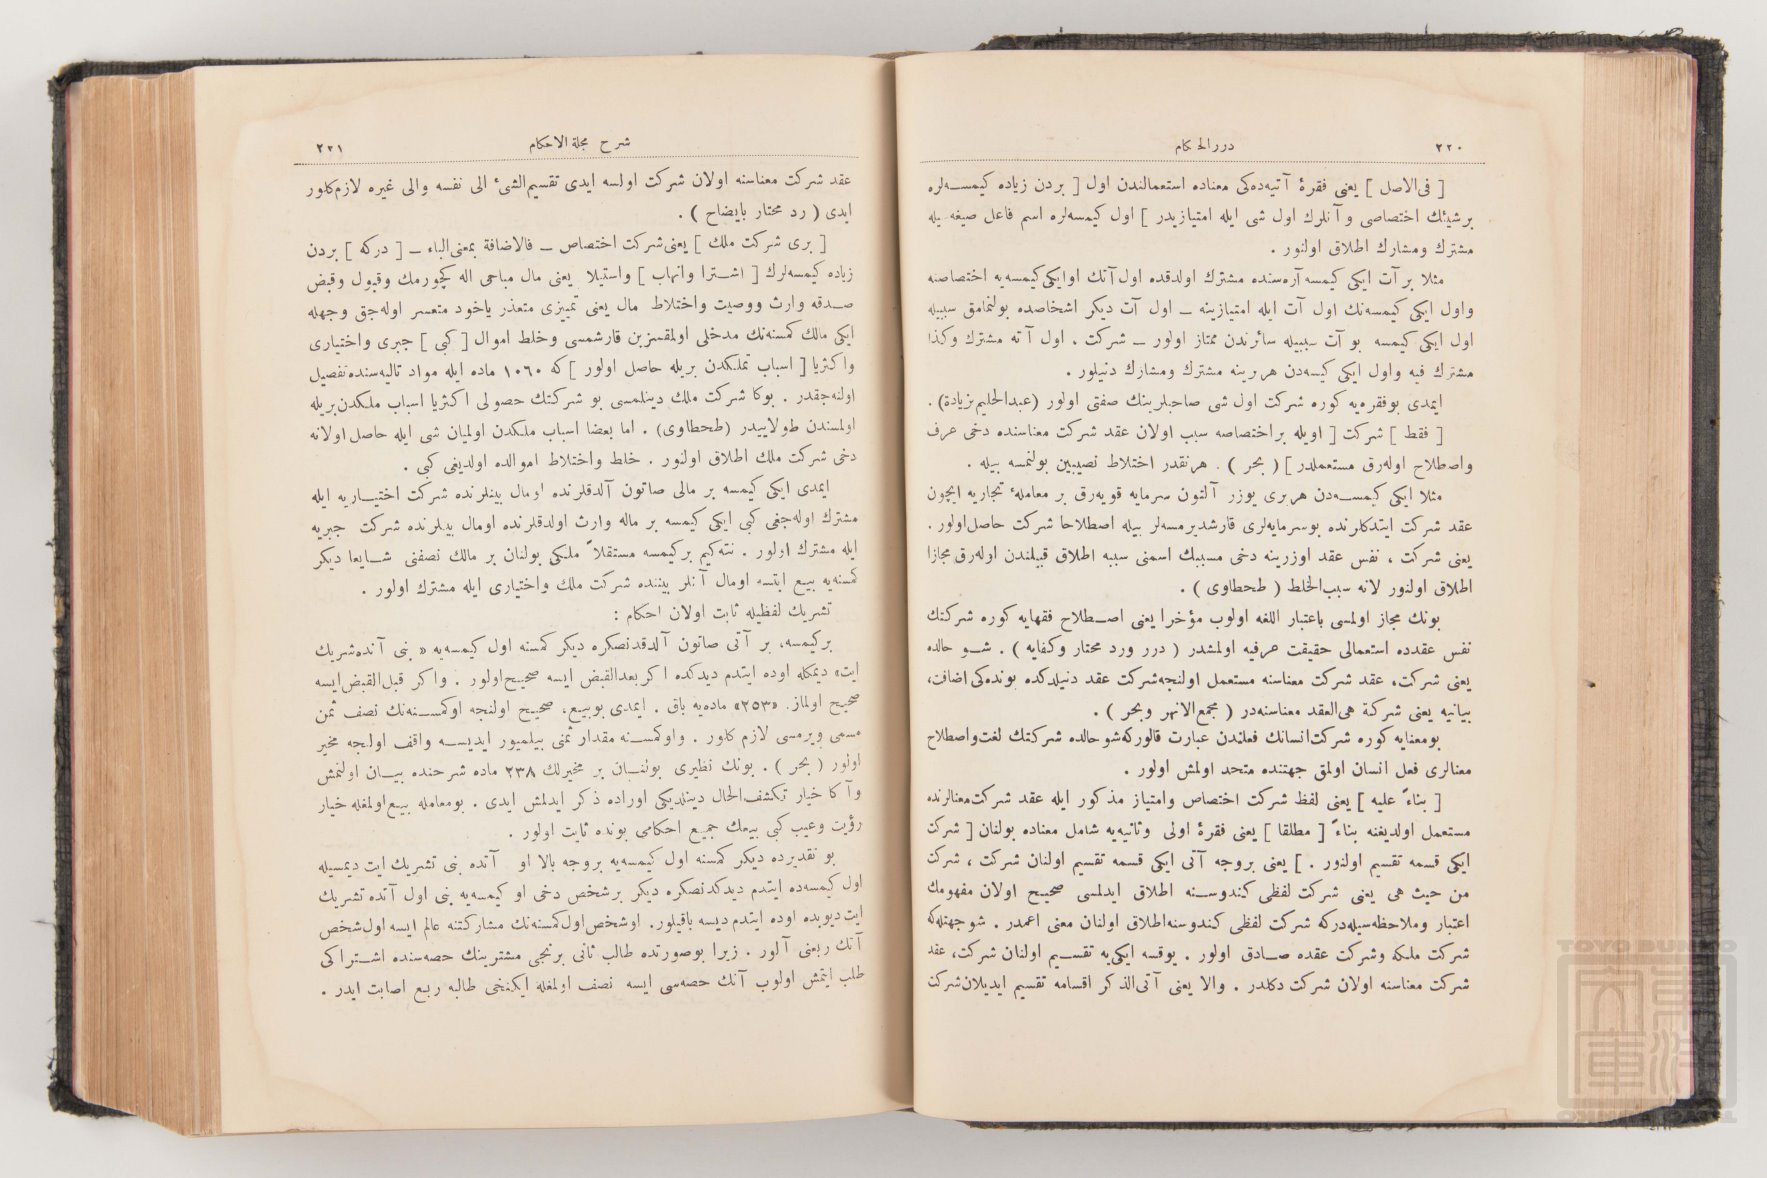 ٢٢٠
درر الحكام
[ فی‌الاصل ] یعنی فقرهٔ آتیه‌ده‌کی معناده استعمالندن اول [ بردن زیاده کیمســه‌لره
برشیئك اختصاصی و آنلرك اول شی ایله امتیازیدر ] اول کیمسه‌لره اسم فاعل صیغه‌ یله
مشترك ومشارك اطلاق اولنور .
مثلا بر آت ایکی کیمسه آره‌سنده مشترك اولدقده اول آتك اوایکی‌کیمسه‌یه اختصاصنه
واول ایکی کیمسه‌نك اول آت ایله امتیازینه ــ اول آت دیکر اشخاصده بولنمامق سببیله
اول ایکی کیمسه بو آت سببیله سائرندن ممتاز اولور ــ شرکت ، اول آته مشترك وکذا
مشترك فیه واول ایکی کیسه‌دن هر رینه مشترك ومشارك دنیلور .
ایمدی بوفقره‌یه کوره شرکت اول شی صاحبلرینك صفتی اولور (عبدالحلیم‌بزیادة) .
[ فقط ] شرکت [ اویله بر اختصاصه سبب اولان عقد شرکت معناسنده دخی عرف
واصطلاح اوله‌رق مستعملدر ] ( بحر ) . هرنقدر اختلاط نصیبین بولنمسه بیله .
مثلا ایکی کیمســه‌دن هربری یوزر آلتون سرمایه قویه‌رق بر معاملهٔ تجاریه ایچون
عقد شرکت ایتدکلرنده بوسرمایه‌لری قارشدیرمسه‌لر بیله اصطلاحا شرکت حاصل‌اولور .
یعنی شرکت ، نفس عقد اوزرینه دخی مسببك اسمنی سببه اطلاق قبیلندن اوله‌رق مجازا
اطلاق اولنور لانه سبب‌الخلط ( طحطاوی ) .
بونك مجاز اولمسی باعتبار اللغه اولوب مؤخرا یعنی اصـطلاح فقهایه کوره شرکتك
نفس عقدده استعمالی حقیقت عرفیه اولمشدر ( درر ورد محتار وکفایه ) . شــو حالده
یعنی شرکت، عقد شرکت معناسنه مستعمل اولنجه‌شرکت عقد دنیلدکده بونده‌کی اضافت،
بیانیه یعنی شرکة هی‌العقد معناسنه‌در ( مجمع‌الانهر وبحر ) .
بومعنایه کوره شرکت‌انسانك فعلندن عبارت قالورکه‌شوحالده شرکتك لغت‌واصطلاح
معنالری فعل انسان اولمق جهتنده متحد اولمش اولور .
[ بناءً علیه ] یعنی لفظ شرکت اختصاص وامتیاز مذکور ایله عقد شرکت‌معنالرنده
مستعمل اولدیغنه بناءً [ مطلقا ] یعنی فقرهٔ اولی وثانیه‌یه شامل معناده بولنان [ شرکت
ایکی قسمه تقسیم اولنور . ] یعنی بروجه آتی ایکی قسمه تقسیم اولنان شرکت ، شرکت
من حیث هی یعنی شرکت لفظی کندوسـنه اطلاق ایدلمسی صحیح اولان مفهومك
اعتبار وملاحظه‌سیله‌درکه شرکت لفظی کندوسنه‌اطلاق اولنان معنی اعمدر . شوجهتله‌که
شرکت ملکه وشرکت عقده صــادق اولور . یوقسه ایکی‌یه تقسـیم اولنان شرکت، عقد
شرکت معناسنه اولان شرکت دکلدر . والا یعنی آتی‌الذکر اقسامه تقسیم ایدیلان‌شرکت
شرح مجلة الاحکام
٢٢١
عقد شرکت معناسنه اولان شرکت اولسه ایدی تقسیم‌الشیٔ الی نفسه والی غیره لازم‌کلور
ایدی ( رد محتار بایضاح ) .
[ بری شرکت ملك ] یعنی‌شرکت اختصاص ــ فالاضافة بمعنی‌الباء ــ [ درکه ] بردن
زیاده کیمسه‌لرك [ اشـترا واتهاب ] واستیلا یعنی مال مباحی اله کچورمك وقبول وقبض
صـدقه وارث ووصیت واختلاط مال یعنی تمییزی متعذر یاخود متعسر اوله‌جق وجهله
ایکی مالك کمسنه‌نك مدخلی اولمقسزین قارشمسی وخلط اموال [ کبی ] جبری واختیاری
واکثریا [ اسباب تملکدن بریله حاصل اولور ] که ١٠٦٠ ماده ایله مواد تالیه‌سنده‌تفصیل
اولنه‌جقدر . بوکا شرکت ملك دینلمسی بو شرکتك حصولی اکثریا اسباب ملکدن‌بریله
اولمسندن طولاییدر (طحطاوی) . اما بعضا اسباب ملکدن اولمیان شی ایله حاصل‌اولانه
دخی شرکت ملك اطلاق اولنور . خلط واختلاط اموالده اولدیغی کبی .
ایمدی ایکی کیمسه بر مالی صاتون آلدقلرنده اومال بینلرنده شرکت اختیــاریه ایله
مشترك اوله‌جغی کبی ایکی کیمسه بر ماله وارث اولدقلرنده اومال بینلرنده شرکت جبریه
ایله مشترك اولور . نته‌کیم برکیمسه مستقلاً ملکی بولنان بر مالك نصفنی شــایعا دیکر
کمسنه‌یه بیع ایتسه اومال آنلر بیننده شرکت ملك واختیاری ایله مشترك اولور .
تشریك لفظیله ثابت اولان احکام :
برکیمسه، بر آتی صاتون آلدقدنصکره دیکر کمسنه اول کیمسه‌یه «بنی آنده‌شریك
ایت» دیمکله اوده ایتدم دیدکده اکر بعدالقبض ایسه صحیح‌اولور . واکر قبل‌القبض‌ایسه
صحیح اولماز. «٢٥٣» ماده‌یه باق . ایمدی بوبیع، صحیح اولنجه اوکمســنه‌نك نصف ثمن
مسمی ویرمسی لازم کلور . واوکمســنه مقدار ثمنی بیلمیور ایدیســه واقف اولنجه مخیر
اولور ( بحر ) . بونك نظیری بولنــان بر مخیرلك ٢٣٨ ماده شرحنده بیــان اولنمش
وآکا خیار تکشف‌الحال دینلدیکی اوراده ذکر ایدلمش ایدی . بومعامله بیع‌اولمغله خیار
رؤیت وعیب کبی بیعك جمیع احکامی بونده ثابت اولور .
بو تقدیرده دیکر کمسنه اول کیمسه‌یه بروجه بالا او آنده بنی تشریك ایت دیمسیله
اول کیمسه‌ده ایتدم دیدکدنصکره دیکر برشخص دخی او کیمسه‌یه بنی اول آتده تشریك
ایت دیوبده اوده ایتدم دیسه باقیلور. اوشخص‌اول‌کمسنه‌نك مشارکتنه عالم ایسه اول‌شخص
آتك ربعنی آلور . زیرا بوصورتده طالب ثانی برنجی مشترینك حصه‌سنده اشــتراکی
طلب ایتمش اولوب آنك حصه‌سی ایسه نصف اولمغله ایکنجی طالبه ربع اصابت ایدر .
TOYO BUNKO